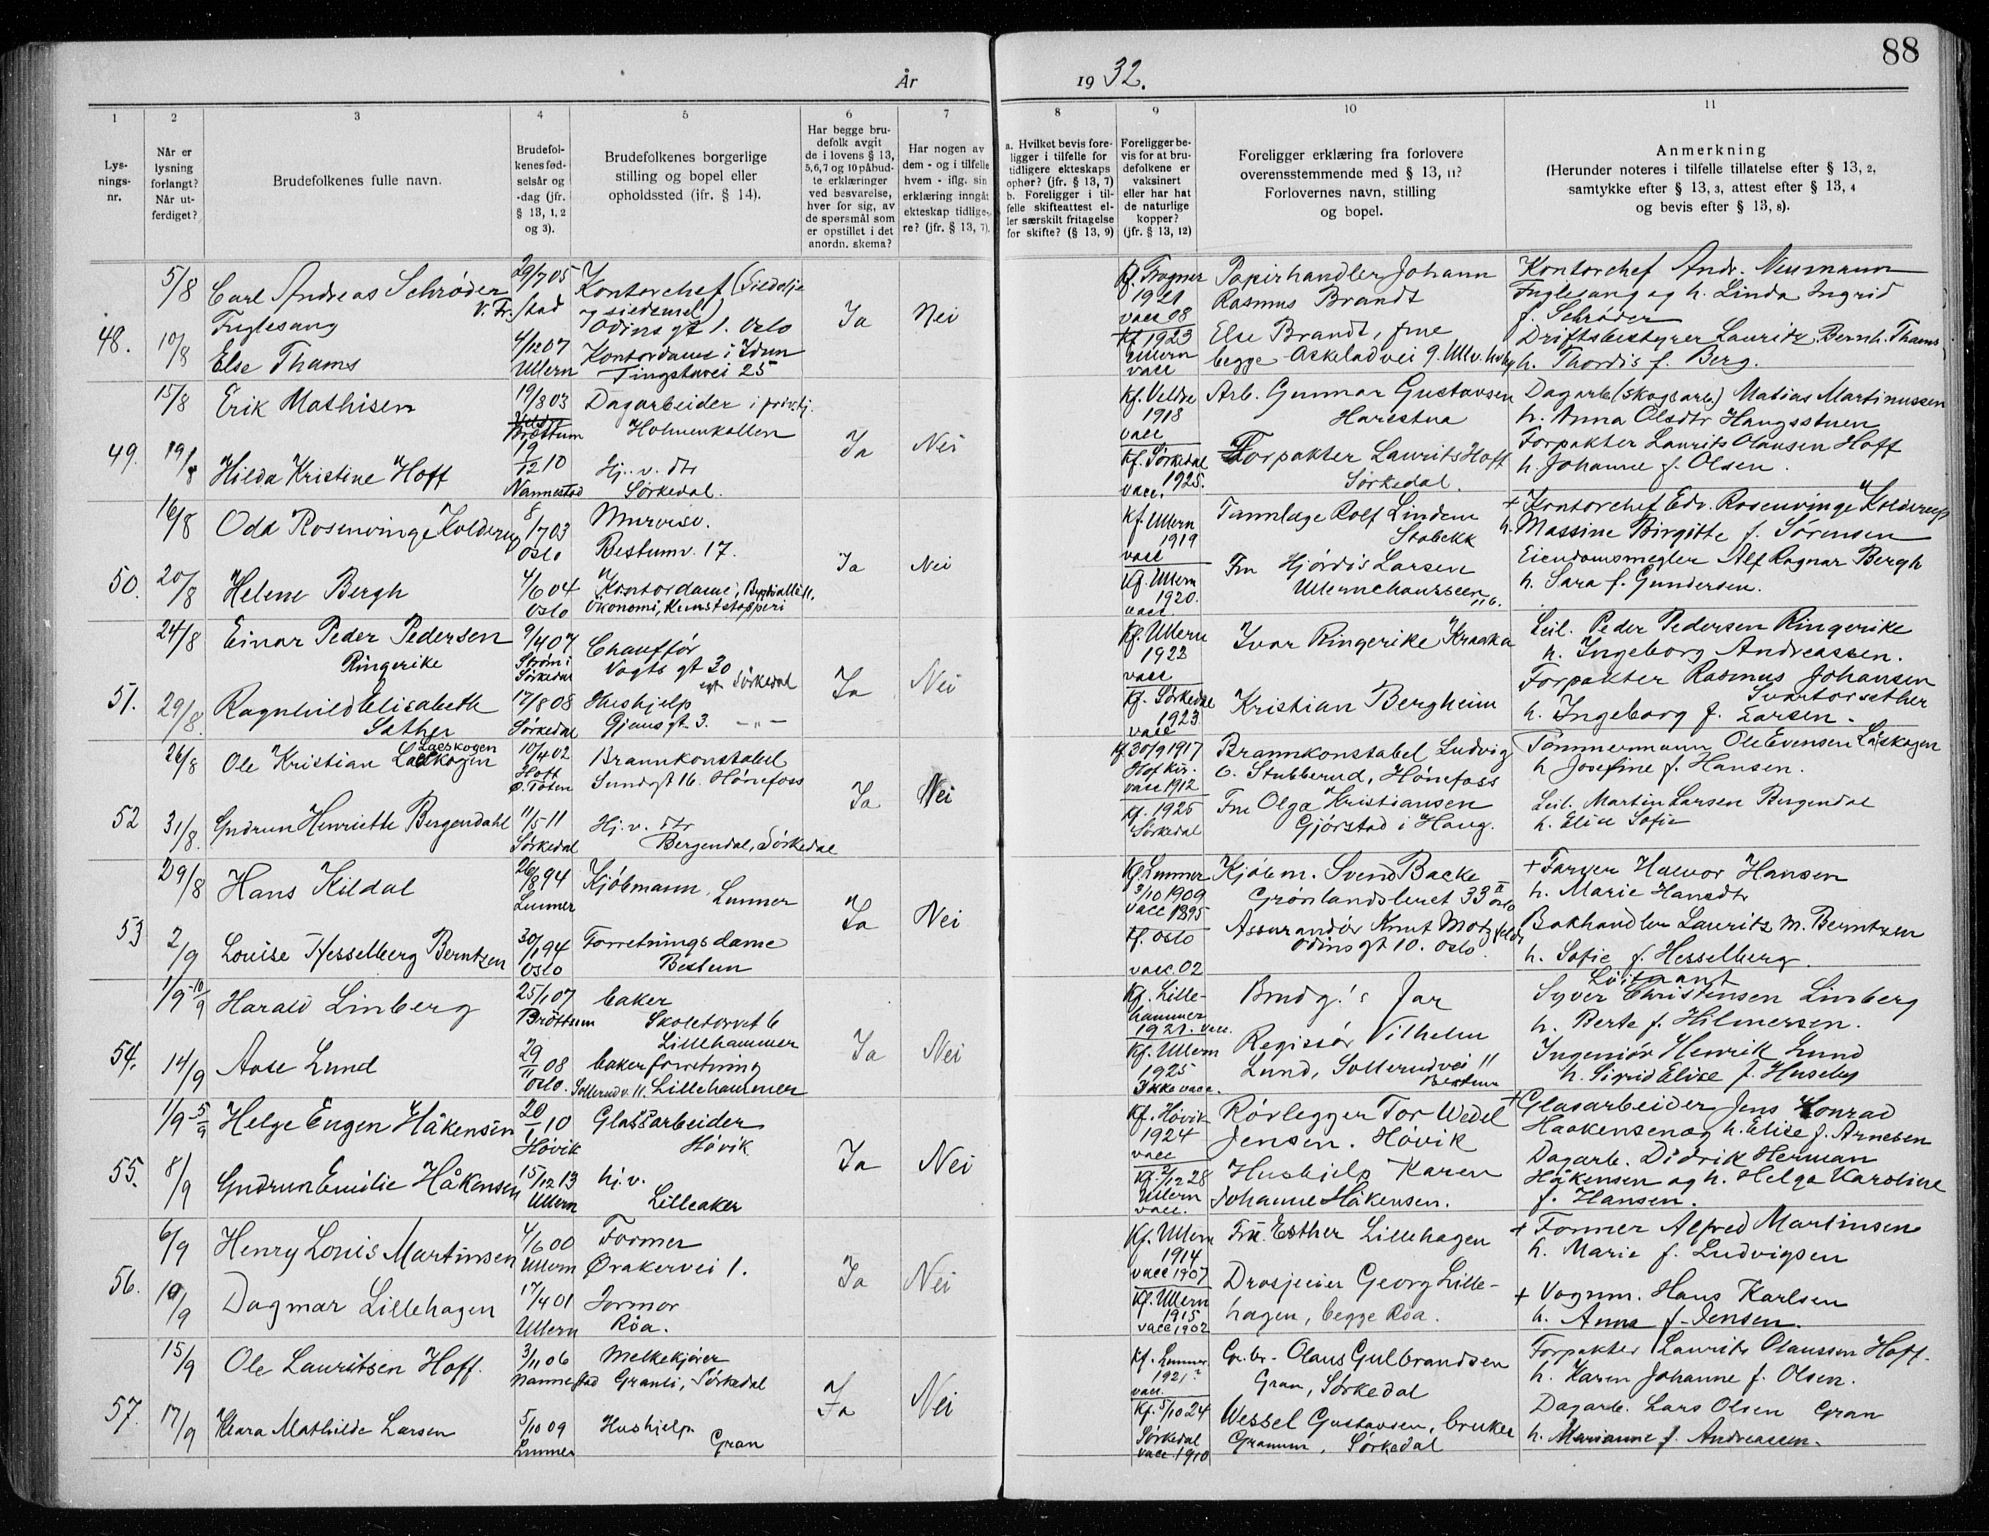 88
År 1932.
1 2 3 4 5 6 7 8 9 10 11
Lys-
nings-
nr.
Når er
lysning
forlangt?
Når ut-
ferdiget?
Brudefolkenes fulle navn.
Brudefol-
kenes fød-
selsår og
-dag (jfr.
§ 13, 1, 2
og 3).
Brudefolkenes borgerlige
stilling og bopel eller
opholdssted (jfr. § 14).
Har begge bru-
defolk avgit
de i lovens § 13,
5,6,7 og 10 påbud-
te erklæringer
ved besvarelse,
hver for sig, av
de spørsmål som
er opstillet i det
anordn. skema?
Har nogen av
dem - og i tilfelle
hvem - iflg. sin
erklæring inngåt
ekteskap tidlige-
re? (jfr. § 13, 7).
a. Hvilket bevis fore-
ligger i tilfelle for
tidligere ekteskaps
ophør? (jfr. § 13, 7)
b. Foreligger i til-
felle skifteattest el-
ler særskilt fritagelse
for skifte? (§ 13, 9)
Foreligger be-
vis for at bru-
defolkene er
vaksinert
eller har hat
de naturlige
kopper?
(jfr. § 13, 12)
Foreligger erklæring fra forlovere
overensstemmende med § 13, 11?
Forlovernes navn, stilling
og bopel.
Anmerkning
(Herunder noteres i tilfelle tillatelse efter § 13, 2,
samtykke efter § 13, 3, attest efter § 13, 4
og bevis efter § 13, 8).
48.
5/8
10/8
Carl Andreas Schrøder
Fuglesang
Else Thams
29/7 05
V. Fr.stad
4/12 07
Ullern
Kontorchef (Sildolje
og sildemel)
Odins gt 1. Oslo
Kontordame i Idun
Tingstuvei 25
Ja
Nei
Kf. Frogner
1921
vacc 08
Kf 1923
Ullern
vacc
Papirhandler Johann
Rasmus Brandt
Else Brandt, frue
begge Askeladvei 9. Ullv. hvby
Kontorchef Andr. Neumann
Fuglesang og h. Linda Ingrid
f. Schrøder
Driftsbestyrer Lauritz Bernh. Thams
h. Thordis f. Berg.
49.
15/8
19/8
Erik Mathisen
Hilda Kristine Hoff
19/8 03
Brøttum
19/12 10
Nannestad
Dagarbeider i priv.tj.
Holmenkollen
Hj. v. dtr
Sørkedal.
Ja
Nei
Kf. Veldre
1918
vacc
Kf. Sørkedal
1925.
vacc.
Arb. Gunnar Gustavsen
Harestua
Forpakter Laurits Hoff
Sørkedal.
Dagarb (skogsarb) Matias Martinussen
h. Anna Olsdtr Haugsstuen
Forpakter Laurits Olausen Hoff
h. Johanne f. Olsen.
50.
16/8
20/8
Odd Rosenvinge Kolderup
Helene Bergh
8/7 03
Oslo
4/6 04
Oslo
Murvisv.
Bestumv. 17.
Kontordame, Bygdøallé 11.
Økonomi, Kunststopperi
Ja
Nei
Kf. Ullern
1919
vacc
Kf. Ullern
1920.
vacc.
Tannlæge Rolf Lindem
Stabekk
Fru Hjørdis Larsen
Ullernchausseen 116.
+ Kontorchef Edv. Rosenvinge Kolderup
h. Massine Birgitte f. Sørensen
Eiendomsmegler Alf Ragnar Bergh
h. Sara f. Gundersen.
51.
24/8
29/8.
Einar Peder Pedersen
Ringerike
Ragnhild Elisabeth
Sæther
9/4 07
Strøm i
Sørkedal
17/8 08
Sørkedal
Chauffør
Vogts gt 30
egt. Sørkedal
Hushjelp
Gjøus gt 3. -"-
Ja
Nei
Kf. Ullern
1922
vacc
Kf. Sørkedal
1923
vacc
Ivar Ringerike Kraaka
Kristian Bergheim
Leil. Peder Pedersen Ringerike
h. Ingeborg Andreassen.
Forpakter Rasmus Johansen
Svartorsether
h. Ingeborg f. Larsen.
52
26/8
31/8.
Ole Kristian Laeskogen
Laeskogen
Gudrun Henriette Bergendahl
10/4 02
Hoff
Ø. Toten
11/5 11
Sørkedal
Brannkonstabel
Sundgt 16. Hønefoss
Hj. v. dtr
Bergendal, Sørkedal
Ja
Nei
Kf. 30/9 1917
Hof kir.
vacc 1912
Kf. 1925
Sørkedal
Brannkonstabel Ludvig
O. Stubberud, Hønefoss
Fru Olga Kristiansen
Gjørstad i Haug.
Tømmermann Ole Evensen Læskogen
h Josefine f. Hansen.
Leil. Martin Larsen Bergendal
h. Elise Sofie
53
29/8
2/9
Hans Kildal
Louise Hesselberg Berntzen
26/8 94
Lunner
30/1 94
Oslo
Kjøbmann.
Lunner
Forretningsdame
Bestum
Ja
Nei
Kf. Lunner
3/10 1909
vacc 1895
Kf. Oslo
vacc. 02
Kjøbm. Svend Backe
Grønlandsleret 33 II Oslo
Assurandør Knut Motzfeldt
Odins gt 10. Oslo.
+ Farver Halvor Hansen
h. Marie Hansdtr
Bokhandler Lauritz M. Berntzen
h. Sofie f. Hesselberg.
54.
1/9 - 10/9
14/9
Harald Linberg
Aase Lund
25/1 07
Brøttum
29/11 08
Oslo.
baker
Skoletorvet 6
Lillehammer
bakerforretning
Sollerudv. 11. Lillehammer
Ja
Nei
Kf. Lille-
hammer
1921. vacc.
Kf. Ullern
1925
Ikke vacc.
Brudg.'s far
Regissør Vilhelm
Lund, Sollerudvei 11
Bestum
Løitnant
Syver Christensen Linberg
h. Berte f. Hilmersen.
Ingeniør Henrik Lund
h. Sigrid Elise f. Huseby
55.
1/9 5/9
8/9
Helge Eugen Håkensen
Gudrun Emilie Håkensen
20/1 10
Høvik
15/12 13
Ullern
Glassarbeider
Høvik
hj. v.
Lilleaker
Ja
Nei
Kf. Høvik
1924
vacc
Kf. 2/12 28
Ullern
vacc.
Rørlegger Tor Wedel
Jensen. Høvik
Hushjelp Karen
Johanne Håkensen.
+ Glasarbeider Jens Konrad
Haakensen og h. Elise f. Arnesen
Dagarb. Didrik Herman
Håkensen og h. Helga Karoline
f. Hansen.
56.
6/9
10/9
Henry Louis Martinsen
Dagmar Lillehagen
4/6 00
Ullern
17/4 01
Ullern
Former
Ørakervei 1.
Jormor
Røa.
Ja
Nei
Kf. Ullern
1914
vacc 1907
Kf. Ullern
1915
vacc 1902
Frk. Esther Lillehagen
Drosjeeier Georg Lille-
hagen, begge Røa.
+ Former Alfred Martinsen
h. Marie f. Ludvigsen
+ Vognm. Hans Karlsen
h. Anna f. Jensen.
57.
15/9
17/9
Ole Lauritsen Hoff.
Klara Mathilde Larsen
3/11 06
Nannestad
5/10 09
Lunner
Melkekjører
Granli, Sørkedal
Hushjelp
Gran
Ja
Nei
Kf. Lunner
1921?
vacc.
Kf. 5/10 24
Sørkedal
vacc. 1910
Gr.br. Olaus Gulbrandsen
Gran, Sørkedal
Wessel Gustavsen, bruker
Granum, Sørkedal
Forpakter Laurits Olaussen Hoff.
h. Karen Johanne f. Olsen.
Dagarb. Lars Olsen Gran
h. Marianne f. Andreassen.